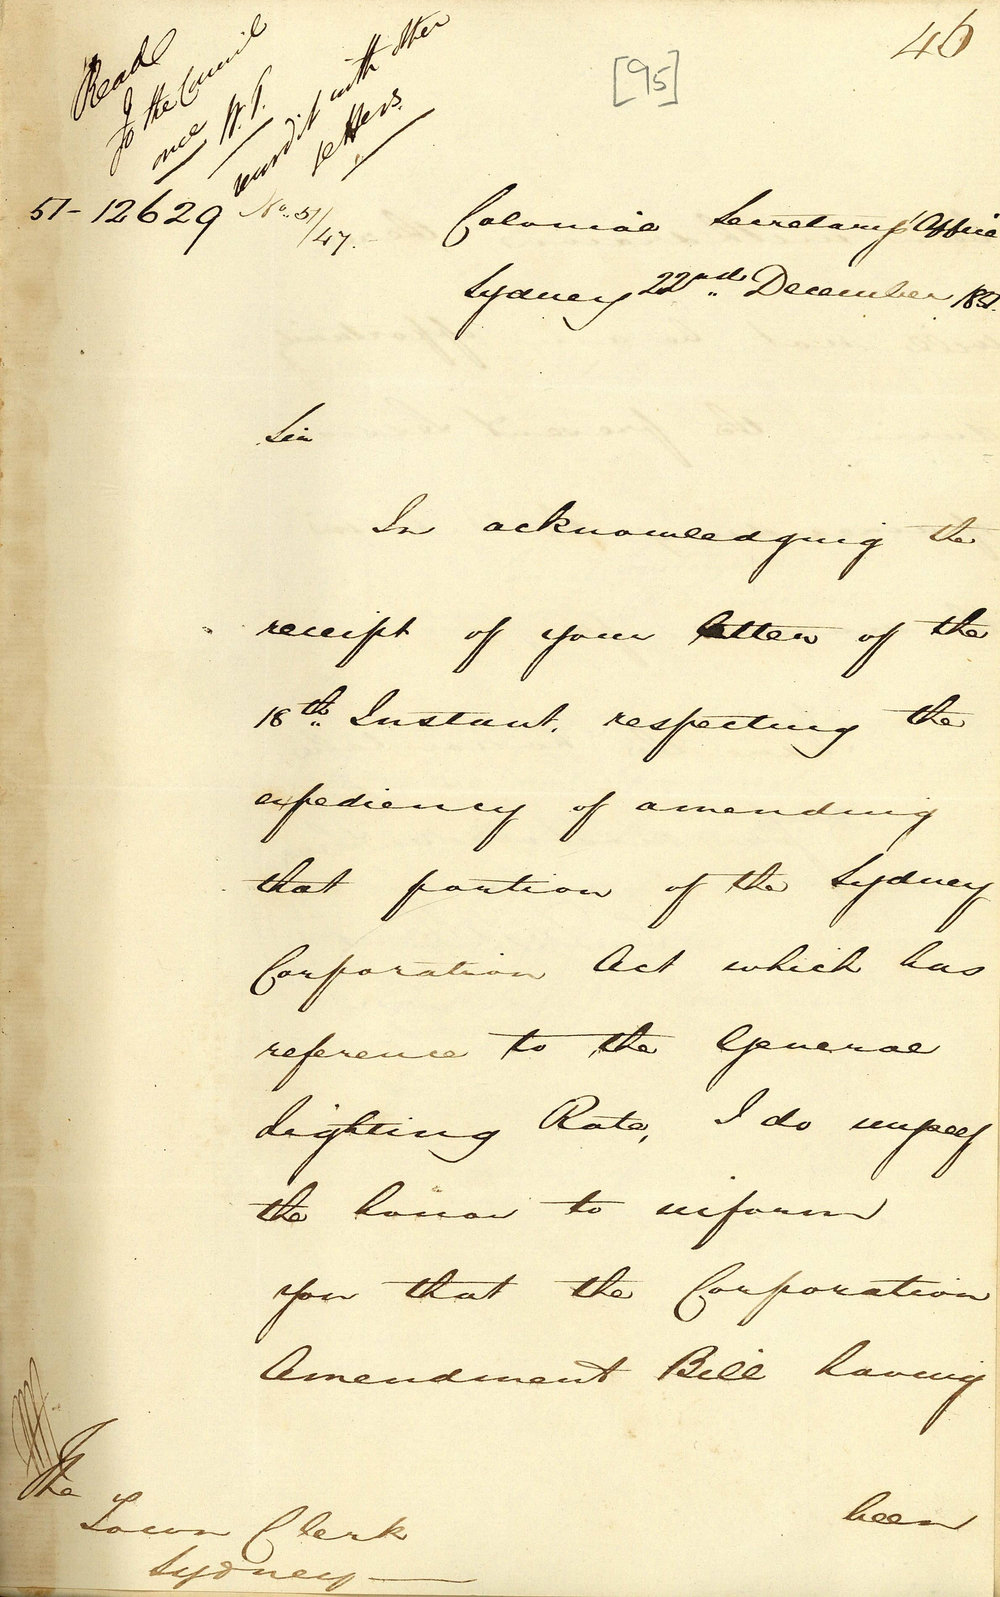 46
[95]
Read
To the Council
once W.P.
with other
letters.
51-12629
No. 51/47.
Colonial Secretary's Office
Sydney 22nd December 1851.
Sir
In acknowledging the
receipt of your letter of the
18th Instant, respecting the
expediency of amending
that portion of the Sydney
Corporation Act which has
reference to the General
Lighting Rate, I do myself
the honor to inform
you that the Corporation
Amendment Bill having
been
The
Town Clerk
Sydney